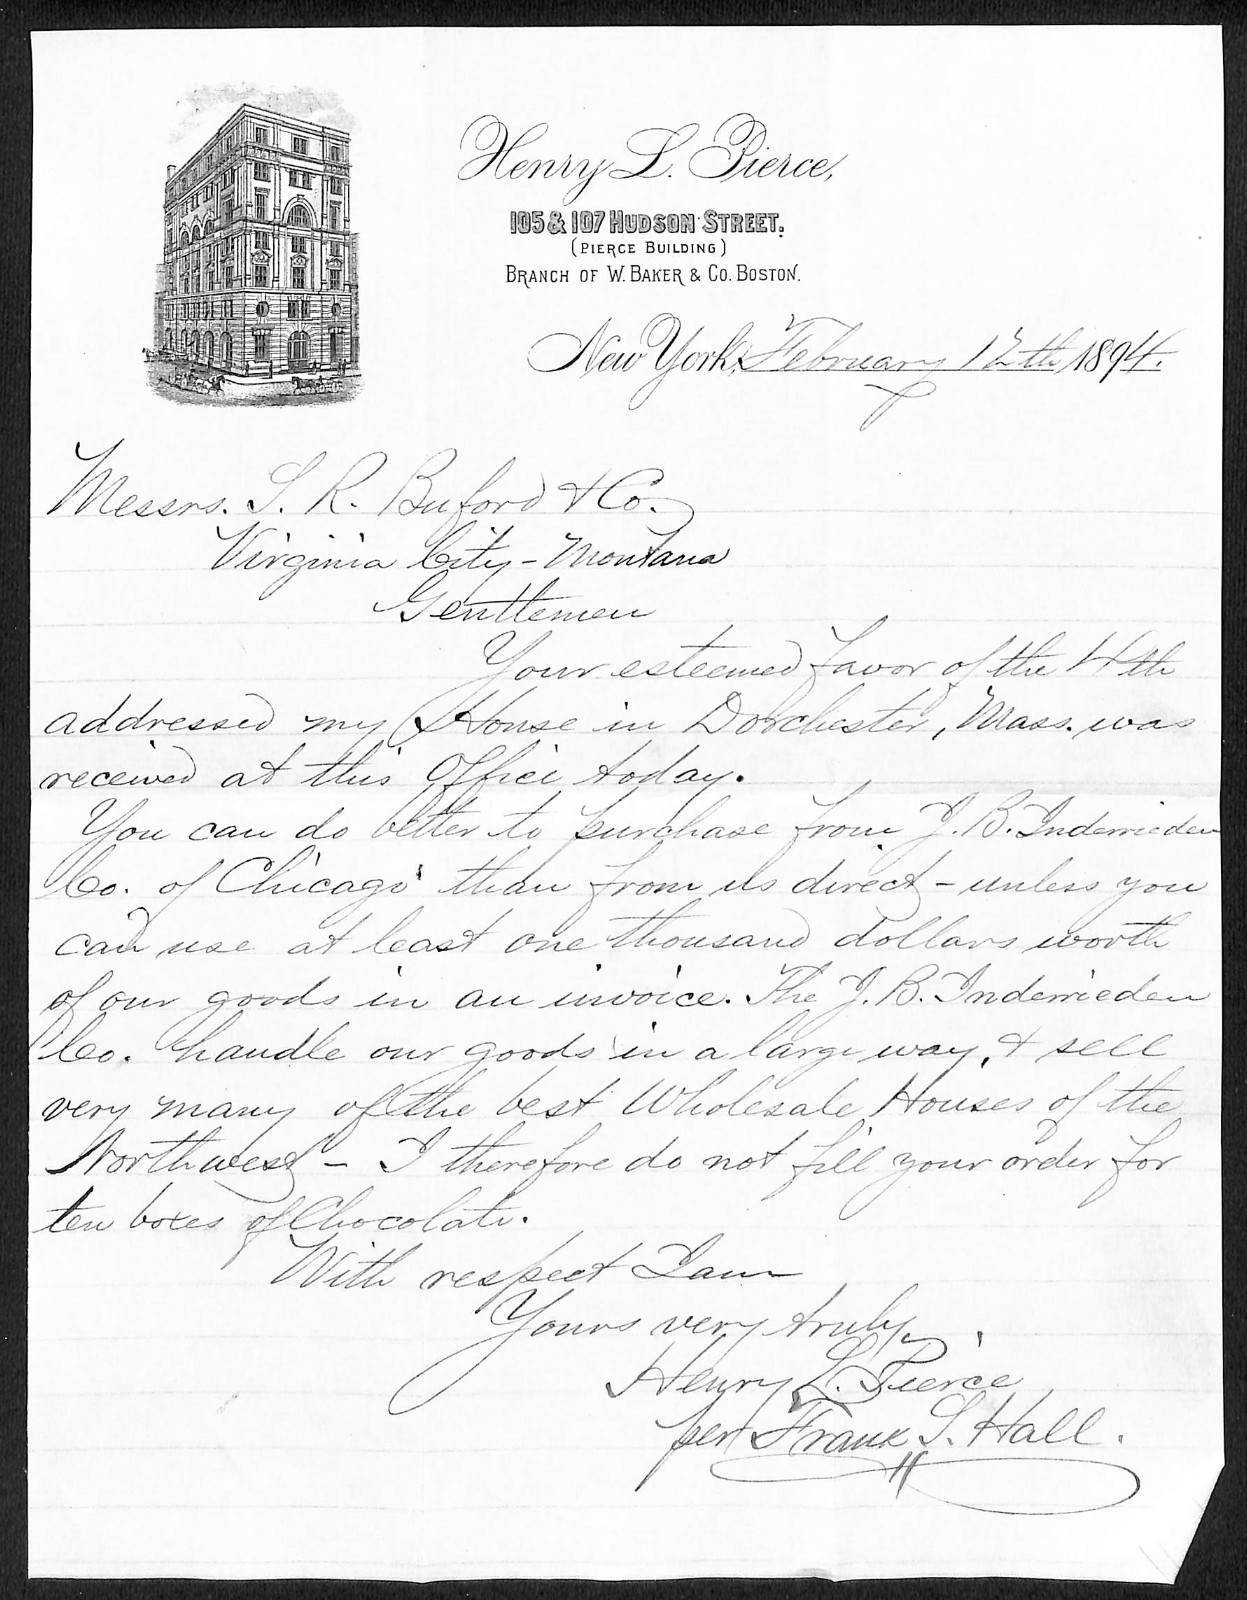 Henry L. Pierce,
105 & 107 HUDSON STREET.
(PIERCE BUILDING)
BRANCH OF W. BAKER & CO. BOSTON.
New York, February 12th 1894.
Messrs. S. R. Buford & Co.
Virginia City - Montana
Gentlemen
Your esteemed favor of the
addressed my House in Dorchester, Mass. was
received at this Office today.
You can do better to purchase from J. B. Inderrieden
Co. of Chicago than from us direct - unless you
can use at least one thousand dollars worth
of our goods in an invoice. The J. B. Inderrieden
Co. handle our goods in a large way, & sell
very many of the best Wholesale Houses of the
Northwest - I therefore do not fill your order for
ten boxes of Chocolate.
With respect I am
Yours very truly,
Henry L. Pierce
per Frank S. Hall.